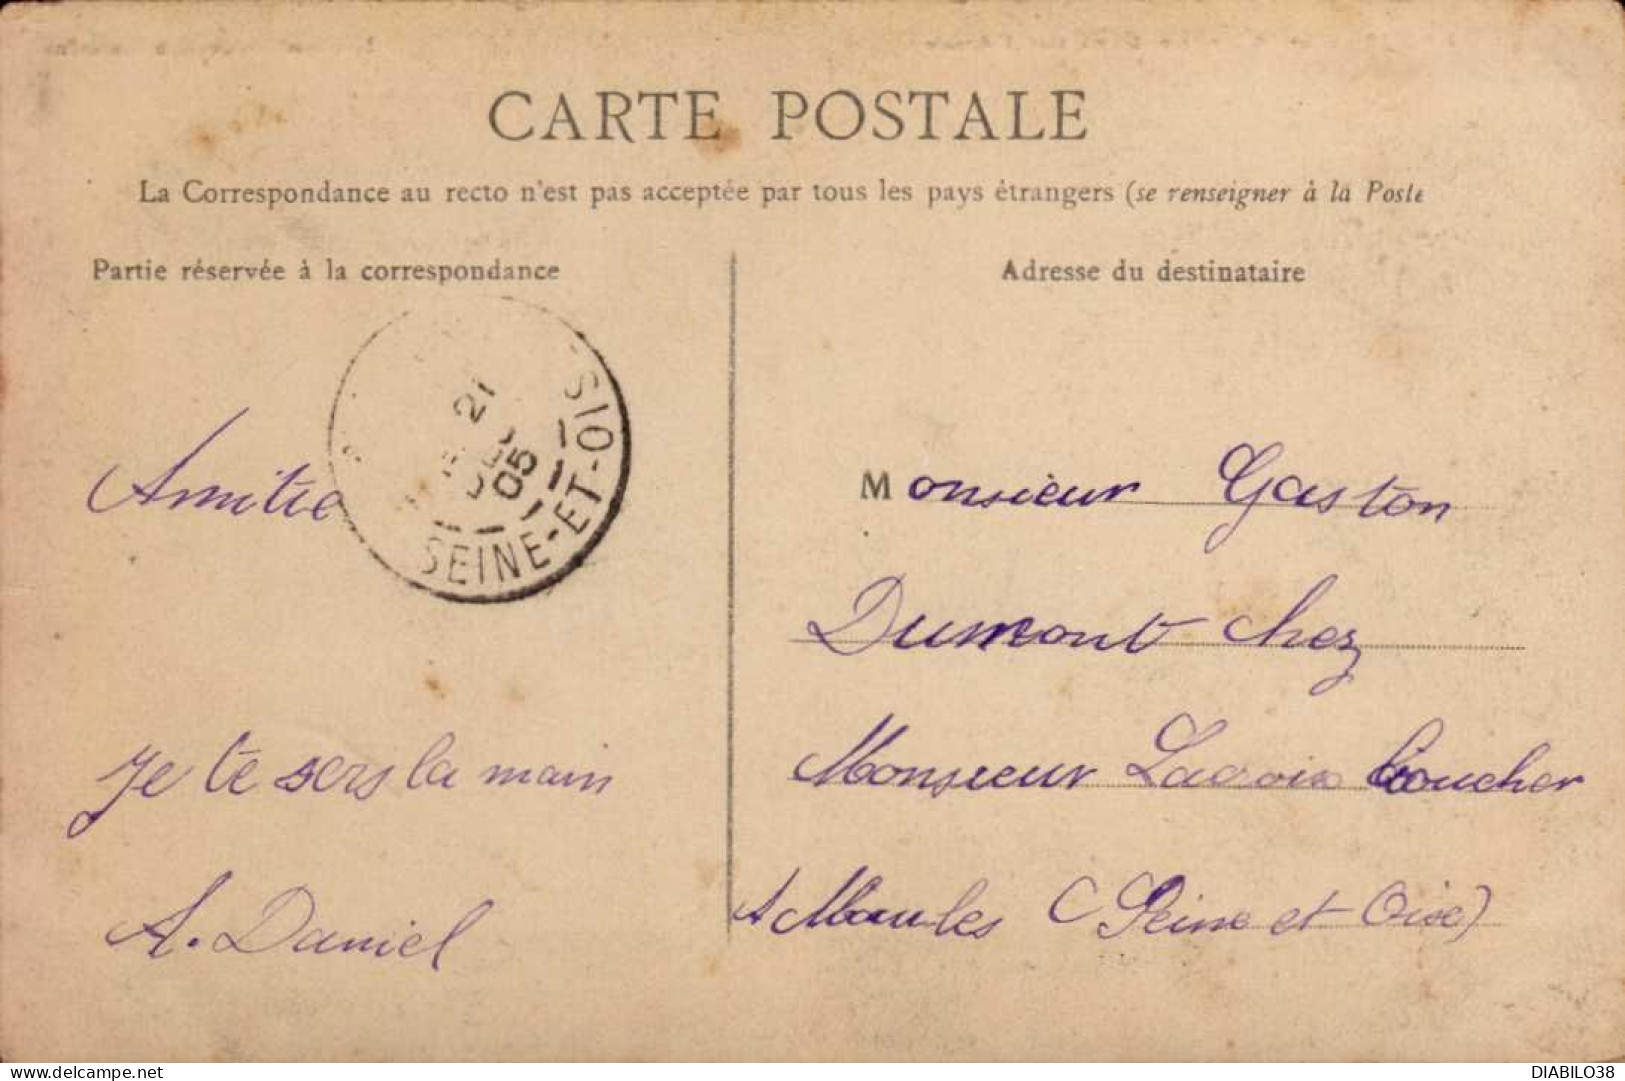 CARTE POSTALE
La Correspondance au recto n'est pas acceptée par tous les pays étrangers (se renseigner à la Poste
Partie réservée à la correspondance
Adresse du destinataire
21
05
SEINE-ET-OIS
Amitié
Je te sers la main
A. Daniel
Monsieur Gaston
Dumont chez
Monsieur Lacroix Boucher
A Maules (Seine et Oise)
https://www.delcampe.net
DIABILO38